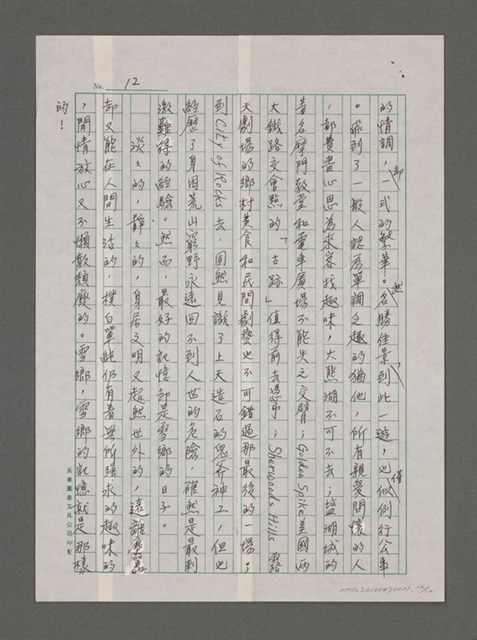 No. 12
的情調，卻一式的繁華。名勝佳景到此一遊，也僅似例行公事
。飛到了一般人認為單調乏趣的猶他，所有親愛関懷的人
，都費盡心思為來客找趣味，大熊湖不可不去；鹽湖城的
著名摩門教堂和電車廣場不能失之交臂；Golden Spike美國兩
大鐵路交會點的「古跡」值得前去憑弔；Sherwoods Hills 露
天劇場的鄉村美食和民間劇藝也不可錯過那最後的一場；
到City of Rocks去，固然見識了上天造石的鬼斧神工，但也
經歷了身困荒山窮野永遠回不到人世的危險，確然是最刺
激難得的經驗。然而，最好的記憶却是雪鄉的日子。
淡淡的，靜靜的，身居文明又超然世外的，遠離塵囂
却又能在人間生活的，樸白單純仍有着無所謂求的趣味的
，閒情放心又不懶散頹廢的。雪鄉，雪鄉的記憶就是那樣
的！